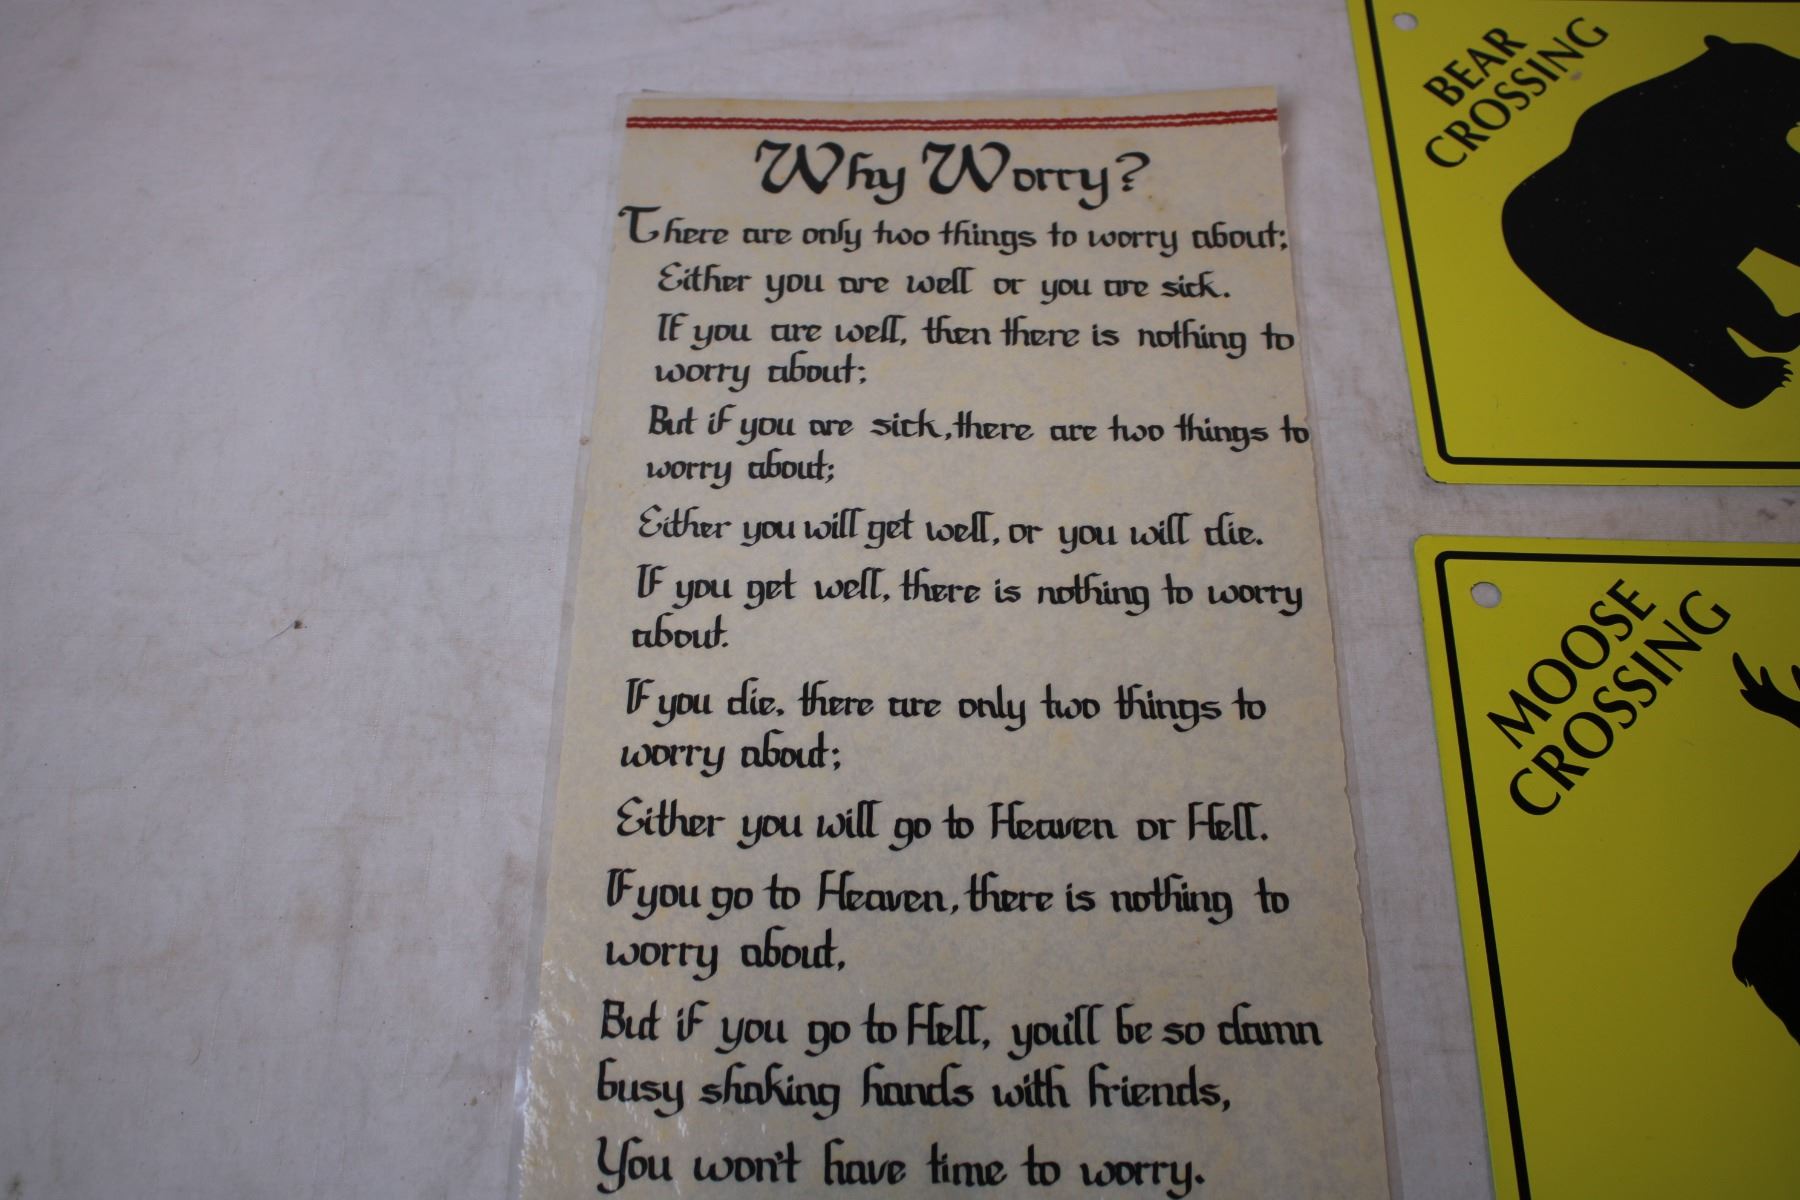 Why Worry?
There are only two things to worry about;
Either you are well or you are sick.
If you are well, then there is nothing to
worry about;
But if you are sick, there are two things to
worry about;
Either you will get well, or you will die.
If you get well, there is nothing to worry
about.
If you die, there are only two things to
worry about;
Either you will go to Heaven or Hell.
If you go to Heaven, there is nothing to
worry about,
But if you go to Hell, you'll be so damn
busy shaking hands with friends,
You won't have time to worry.
BEAR
CROSSING
MOOSE
CROSSING